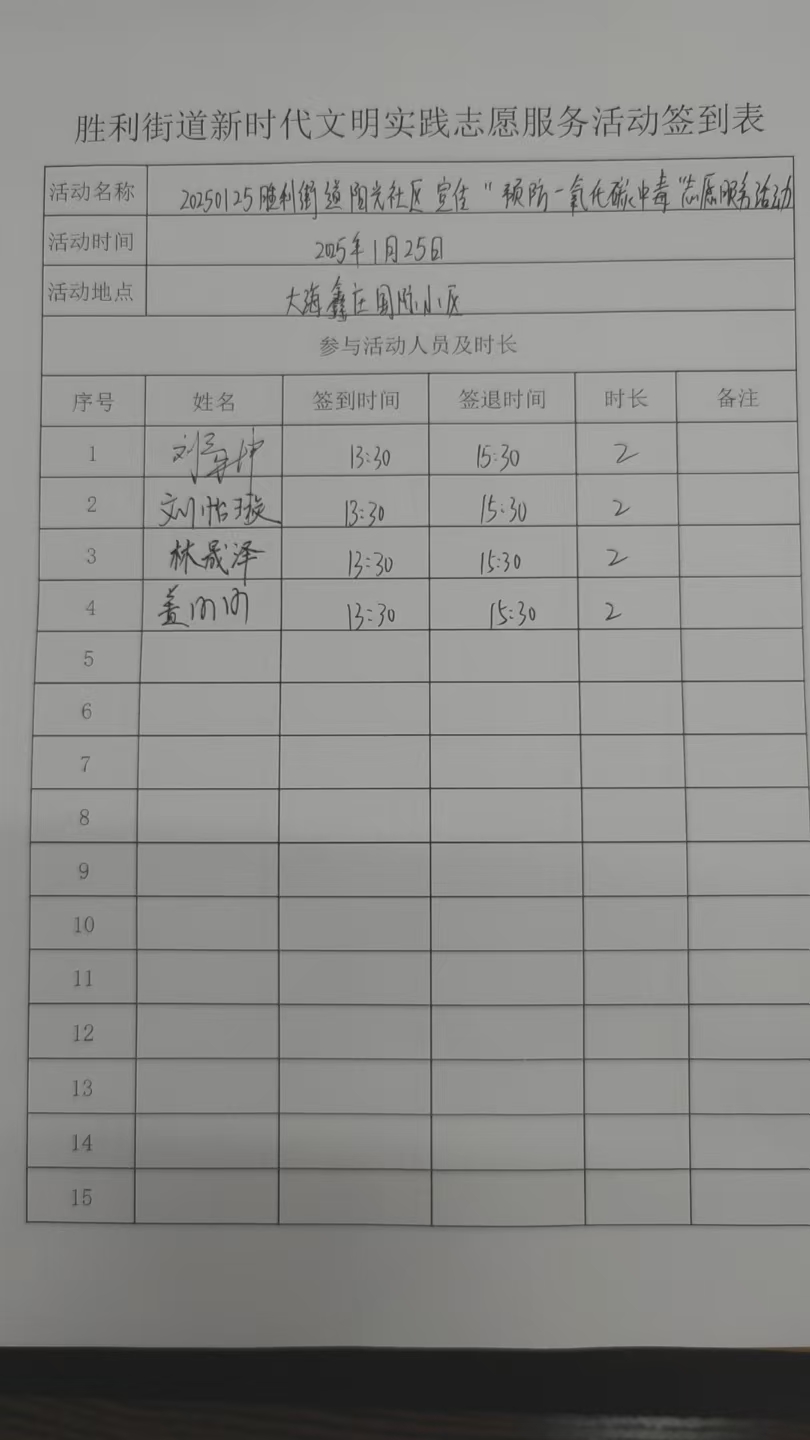 胜利街道新时代文明实践志愿服务活动签到表
活动名称 20250125胜利街道阳光社区宣传"预防一氧化碳中毒"志愿服务活动
活动时间 2025年1月25日
活动地点 大海鑫庄国际小区
参与活动人员及时长
序号 姓名 签到时间 签退时间 时长 备注
1 刘 13:30 15:30 2
2 刘怡璇 13:30 15:30 2
3 林晟泽 13:30 15:30 2
4 盖 13:30 15:30 2
5
6
7
8
9
10
11
12
13
14
15